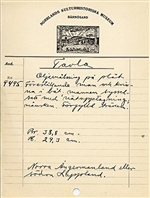 NORRLANDS KULTURHISTORISKA MUSEUM
HÄRNÖSAND
Tavla
9495
Oljemålning på plåt.
Föreställande man och kvinna
i båt, mannen syssel-
satt med nätuppläggning,
Br. 38,8 cm.
H. 29,3 cm.
Norra Ångermanland eller
södra Lappland.